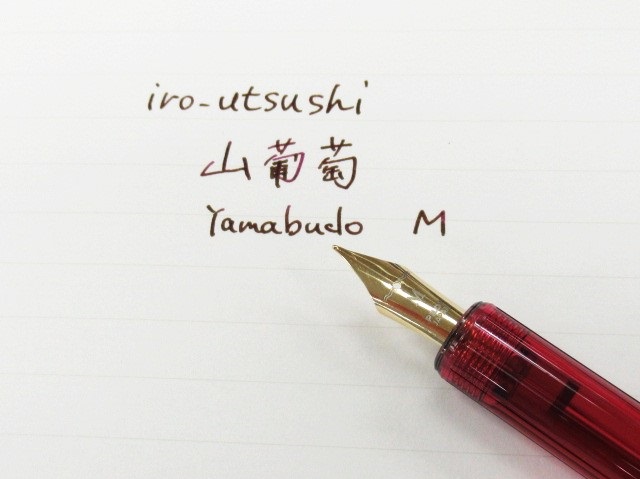 iro-utsushi
山葡萄
Yamabudo M